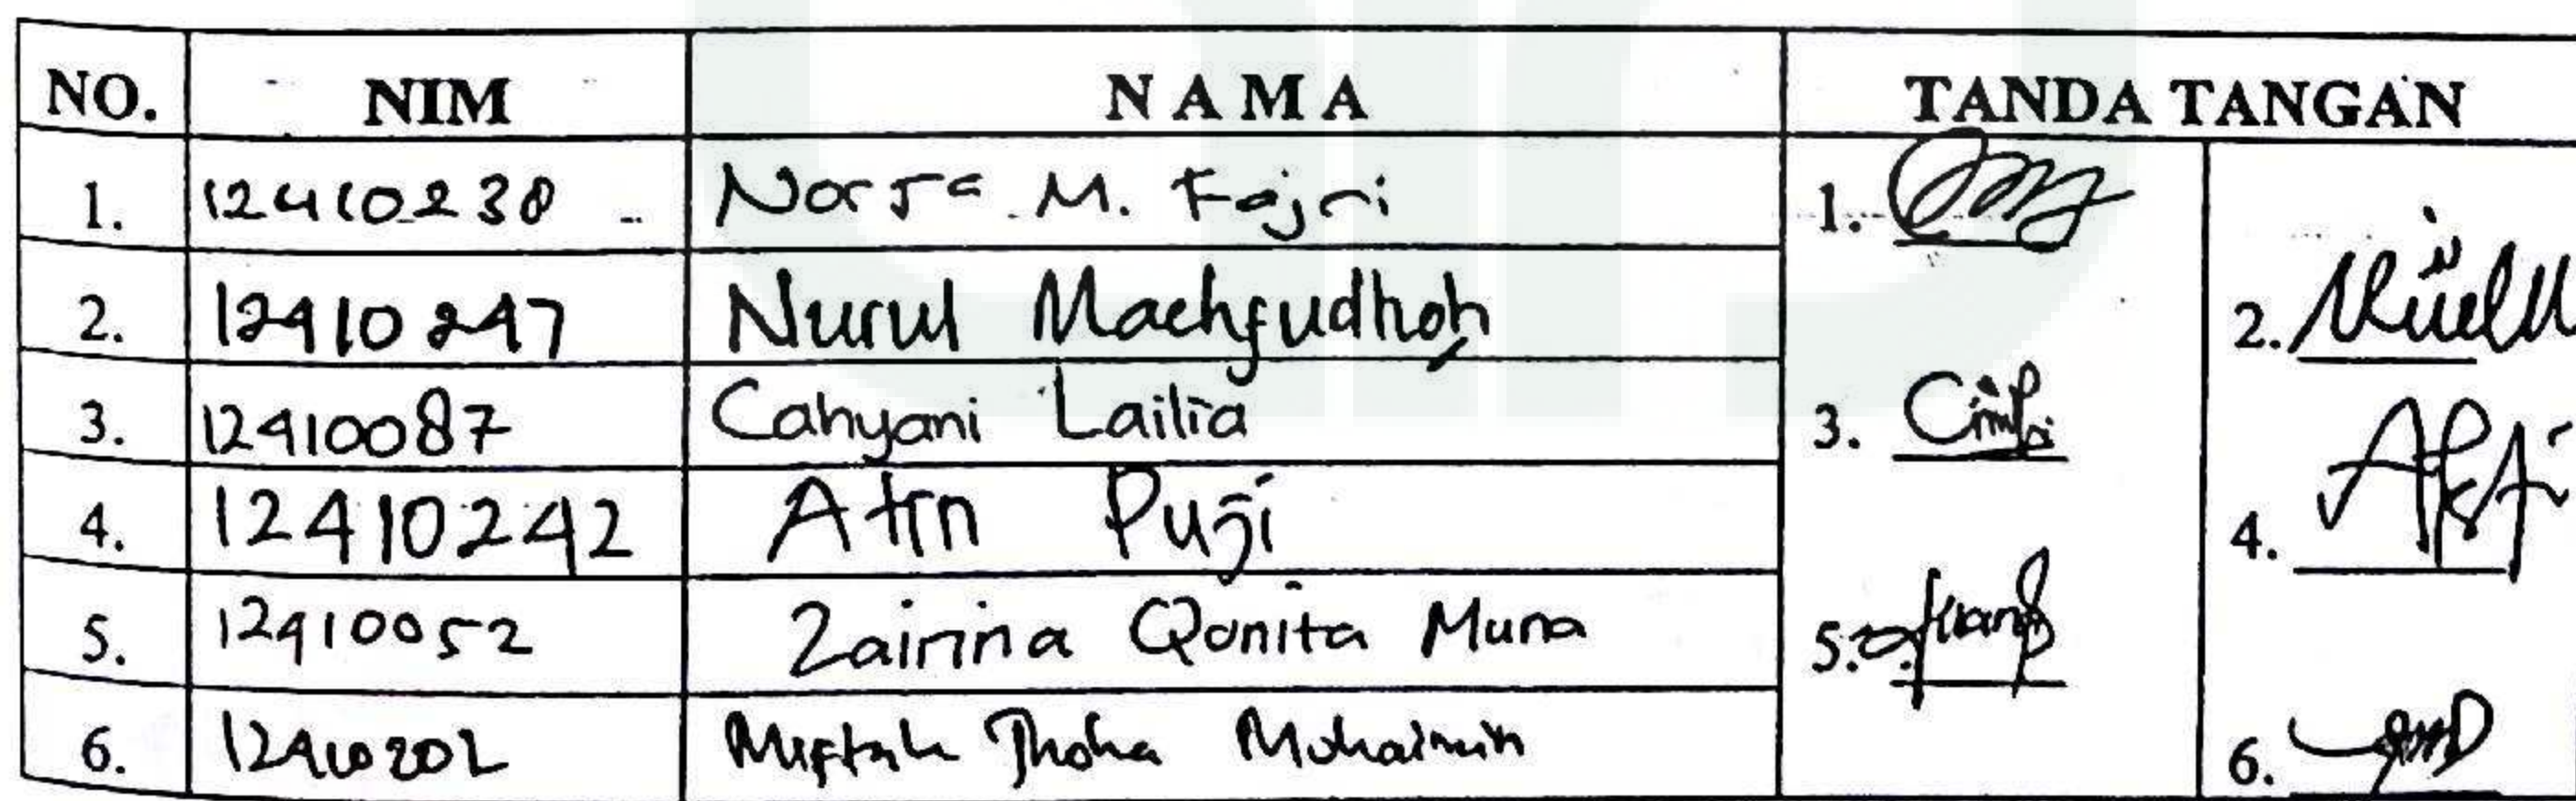 NO. NIM NAMA TANDA TANGAN
1. 12410238 M. Fajri 1.
2. 12410247 Nurul Machfudhoh 2.
3. 12410087 Cahyani Lailia 3.
4. 12410242 Atrn Puji 4.
5. 12410052 Zairina Qonita Muna 5.
6. 12410202 Miftah Thoha Muhaimin 6.